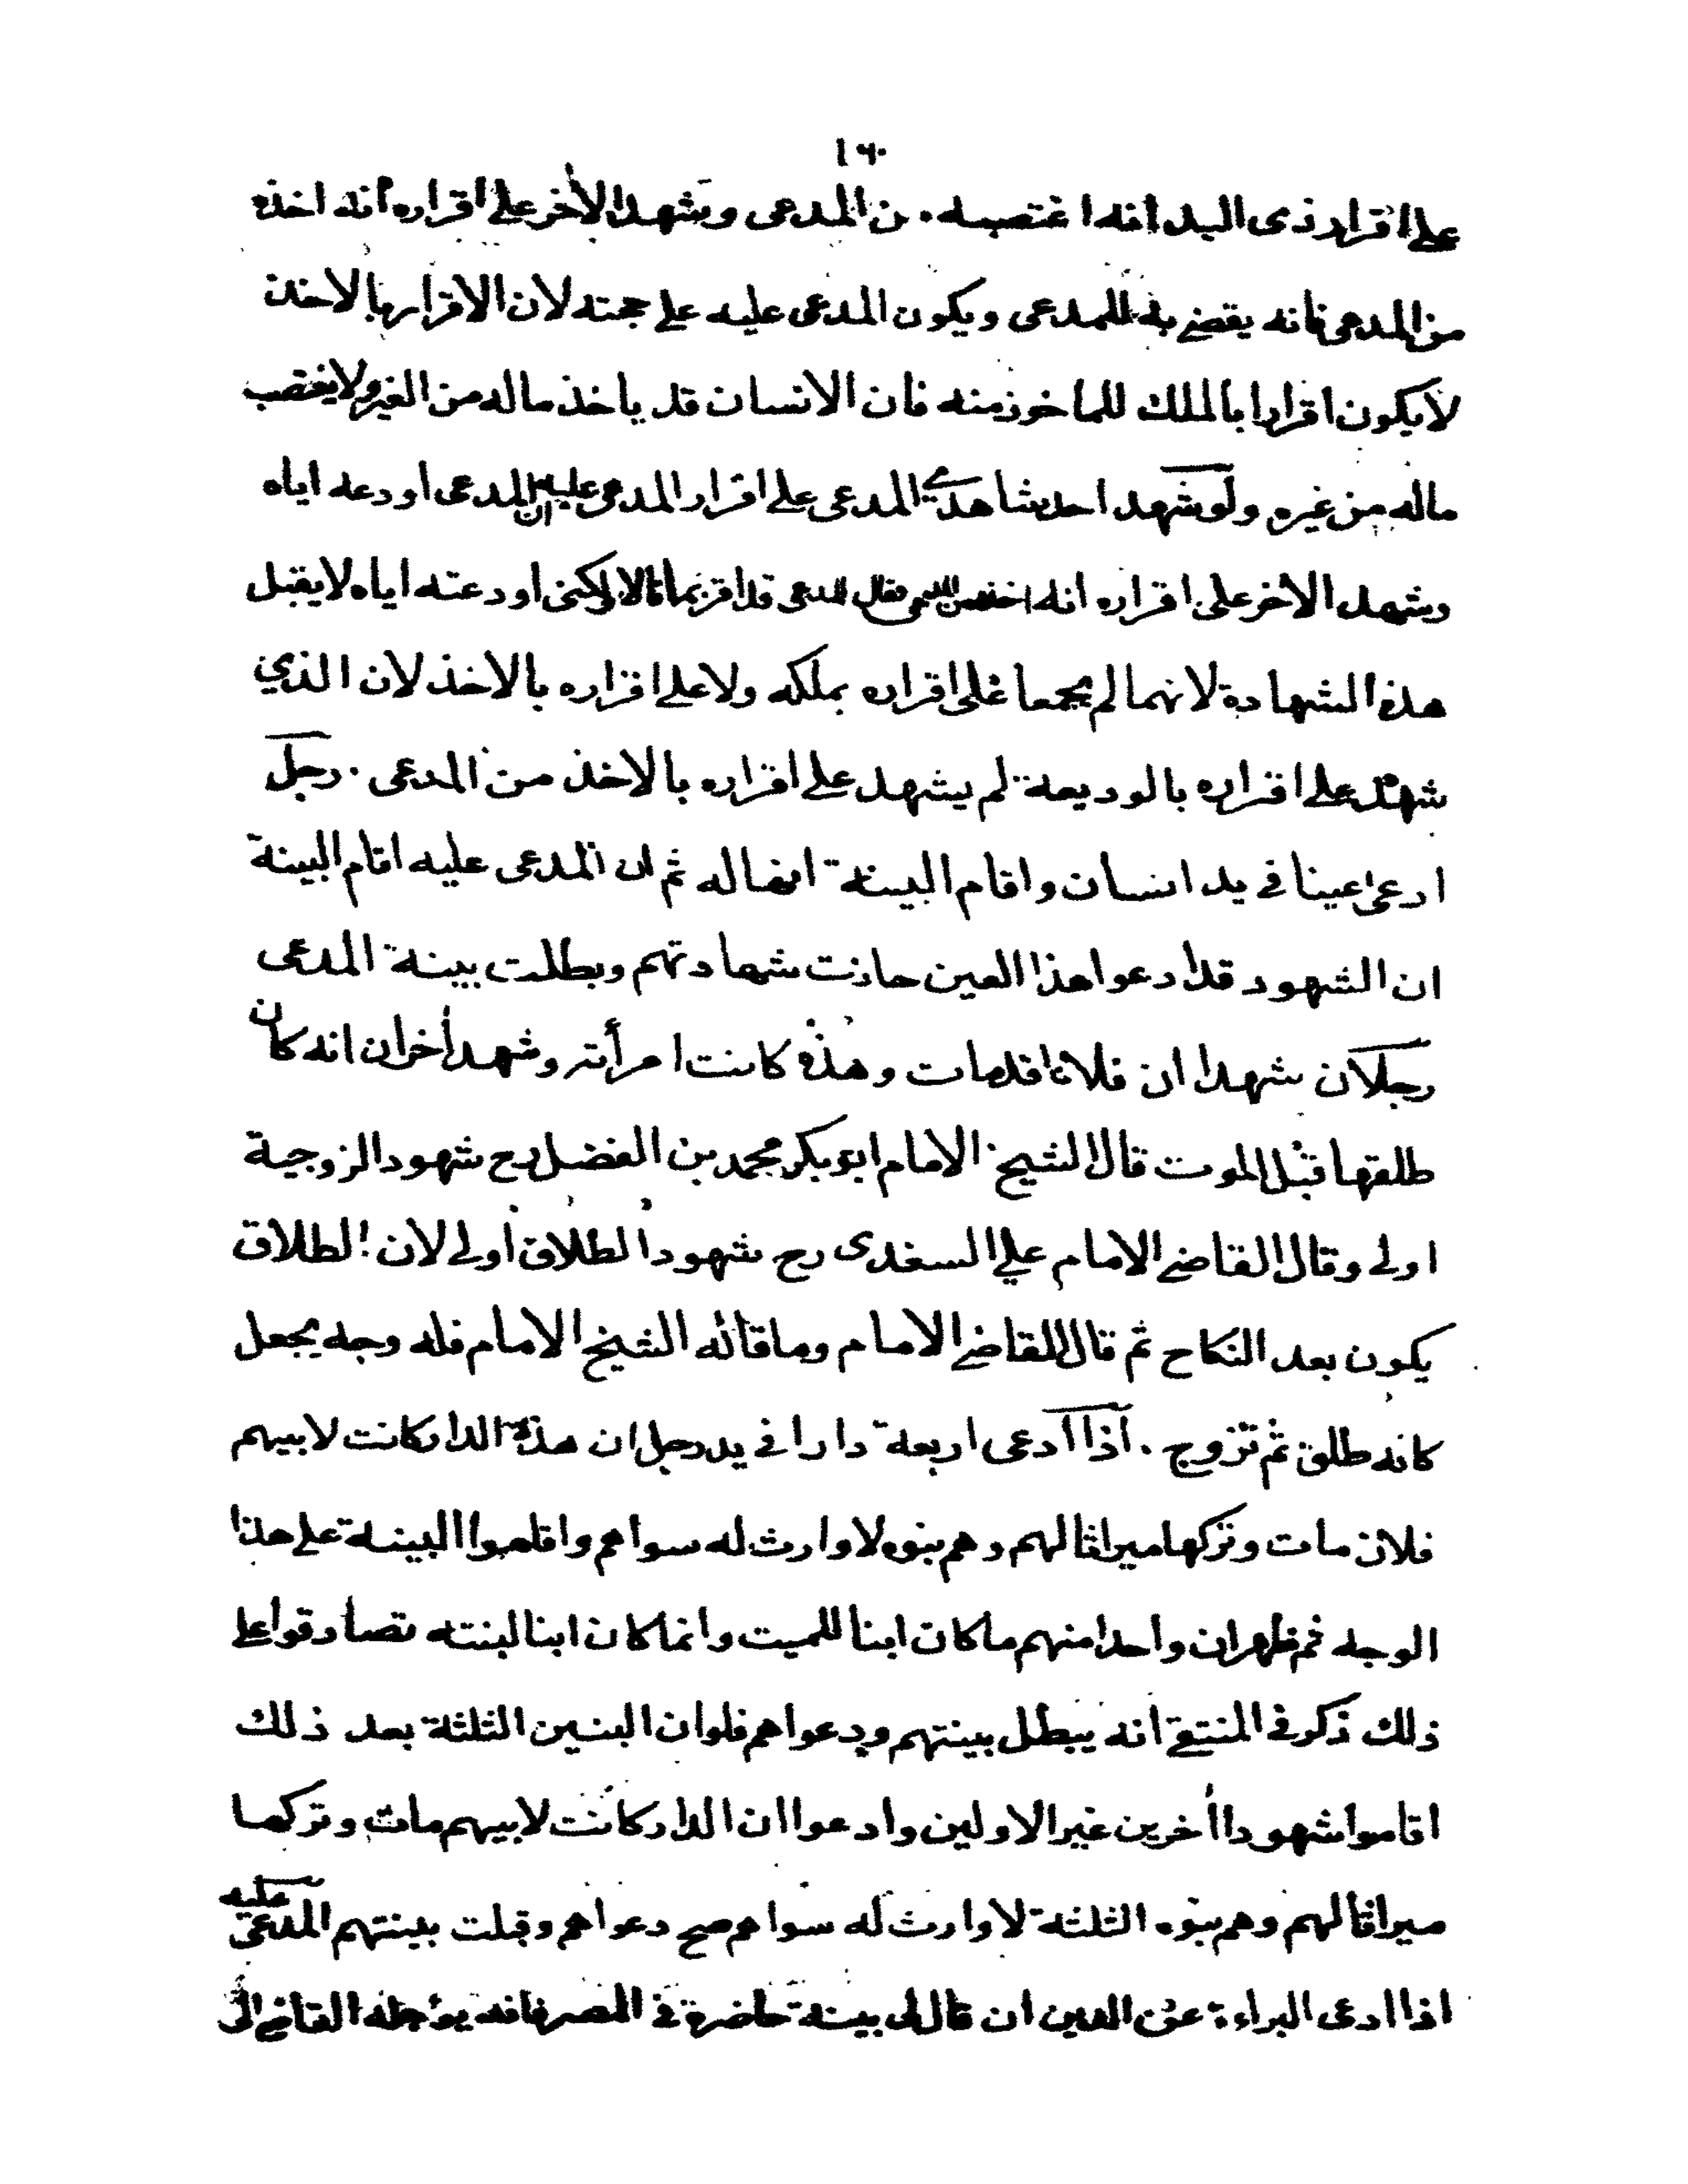 ١٦٠
على اقرار ذى اليد انه اغتصبه من المدعى وشهد الأخر على اقراره انه اخذه
من المدعى فانه يقضى به للمدعى ويكون المدعى عليه على حجته لان الاقرار بالاخذ
لا يكون اقرارا بالملك للماخوذ منه فان الانسان قد ياخذ ماله من الغير ولا يغتصب
ماله من غيره ولو شهد احد شاهدى المدعى على اقرار المدعى عليه ان المدعى اودعه اياه
وشهد الأخر على اقراره انه اخذه من المدعى فقال المدعى قد اقر بما قالا ولكنى اودعته اياه لا يقبل
هذه الشهادة لانهما لم يجمعا على اقراره بملكه ولا على اقراره بالاخذ لان الذي
شهد على اقراره بالوديعة لم يشهد على اقراره بالاخذ من المدعى . رجل
ادعى عينا فى يد انسان واقام البينة انها له ثم ان المدعى عليه اقام البينة
ان الشهود قد ادعوا هذا العين جازت شهادتهم وبطلت بينة المدعى
رجلان شهدا ان فلانا قد مات وهذه كانت امرأته وشهد أخران انه كان
طلقها قبل الموت قال الشيخ الامام ابو بكر محمد بن الفضل رح شهود الزوجية
اولى وقال القاضى الامام علي السغدى رح شهود الطلاق اولى لان الطلاق
يكون بعد النكاح ثم قال القاضى الامام وما قاله الشيخ الامام فله وجه يجعل
كانه طلق ثم تزوج . اذا ادعى اربعة دارا فى يد رجل ان هذه الدار كانت لابيهم
فلان مات وتركها ميراثا لهم وهم بنوه لا وارث له سواهم واقاموا البينة على هذا
الوجه ثم ظهر ان واحدا منهم ما كان ابنا للميت وانما كان ابنا لبنته تصادقوا على
ذلك ذكر فى المنتقى انه يبطل بينتهم ودعواهم فلو ان البنين الثلثة بعد ذلك
اقاموا شهودا أخرين غير الاولين وادعوا ان الدار كانت لابيهم مات وتركها
ميراثا لهم وهم بنوه الثلثة لا وارث له سواهم صح دعواهم وقبلت بينتهم المدعى عليه
اذا ادعى البراءة عن الدين ان قال لى بينة حاضرة فى المصر فانه يؤجله القاضى الى